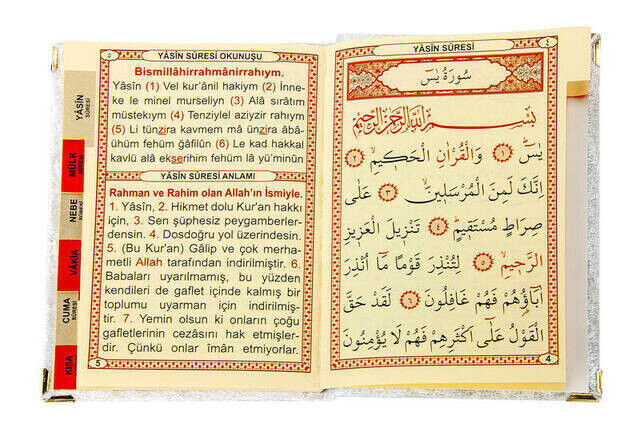 ٥
YÂSİN SÛRESİ OKUNUŞU
Bismillâhirrahmânirrahıym.
Yâsîn (1) Vel kur'ânil hakiym (2) İnne-
ke le minel murseliyn (3) Alâ sırâtim
müstekıym (4) Tenziylel aziyzir rahıym
(5) Li tünzira kavmem mâ ünzira âbâ-
ühüm fehüm ğâfilûn (6) Le kad hakkal
kavlü alâ ekserihim fehüm lâ yü'minûn
YÂSİN SÛRESİ ANLAMI
Rahman ve Rahim olan Allah'ın İsmiyle.
1. Yâsîn, 2. Hikmet dolu Kur'an hakkı
için, 3. Sen şüphesiz peygamberler-
densin. 4. Dosdoğru yol üzerindesin.
5. (Bu Kur'an) Gâlip ve çok merha-
metli Allah tarafından indirilmiştir. 6.
Babaları uyarılmamış, bu yüzden
kendileri de gaflet içinde kalmış bir
toplumu uyarman için indirilmiş-
tir. 7. Yemin olsun ki onların çoğu
gafletlerinin cezasını hak etmişler-
dir. Çünkü onlar îmân etmiyorlar.
5
YÂSİN
SÛRESİ
MÜLK
SÛRESİ
NEBE
SÛRESİ
VÂKIA
CUMA
SÛRESİ
KISA
YÂSİN SÛRESİ
٤
سُورَةُ يٰسٓ
بِسْمِ اللهِ الرَّحْمٰنِ الرَّحِيمِ
يٰسٓۚ ﴿١﴾ وَالْقُرْاٰنِ الْحَكِيمِۙ ﴿٢﴾
اِنَّكَ لَمِنَ الْمُرْسَلِينَۙ ﴿٣﴾ عَلٰى
صِرَاطٍ مُسْتَقِيمٍۜ ﴿٤﴾ تَنْزِيلَ الْعَزِيزِ
الرَّحِيمِۙ ﴿٥﴾ لِتُنْذِرَ قَوْمًا مَٓا اُنْذِرَ
اٰبَٓاؤُهُمْ فَهُمْ غَافِلُونَ ﴿٦﴾ لَقَدْ حَقَّ
الْقَوْلُ عَلٰٓى اَكْثَرِهِمْ فَهُمْ لَا يُؤْمِنُونَ
4